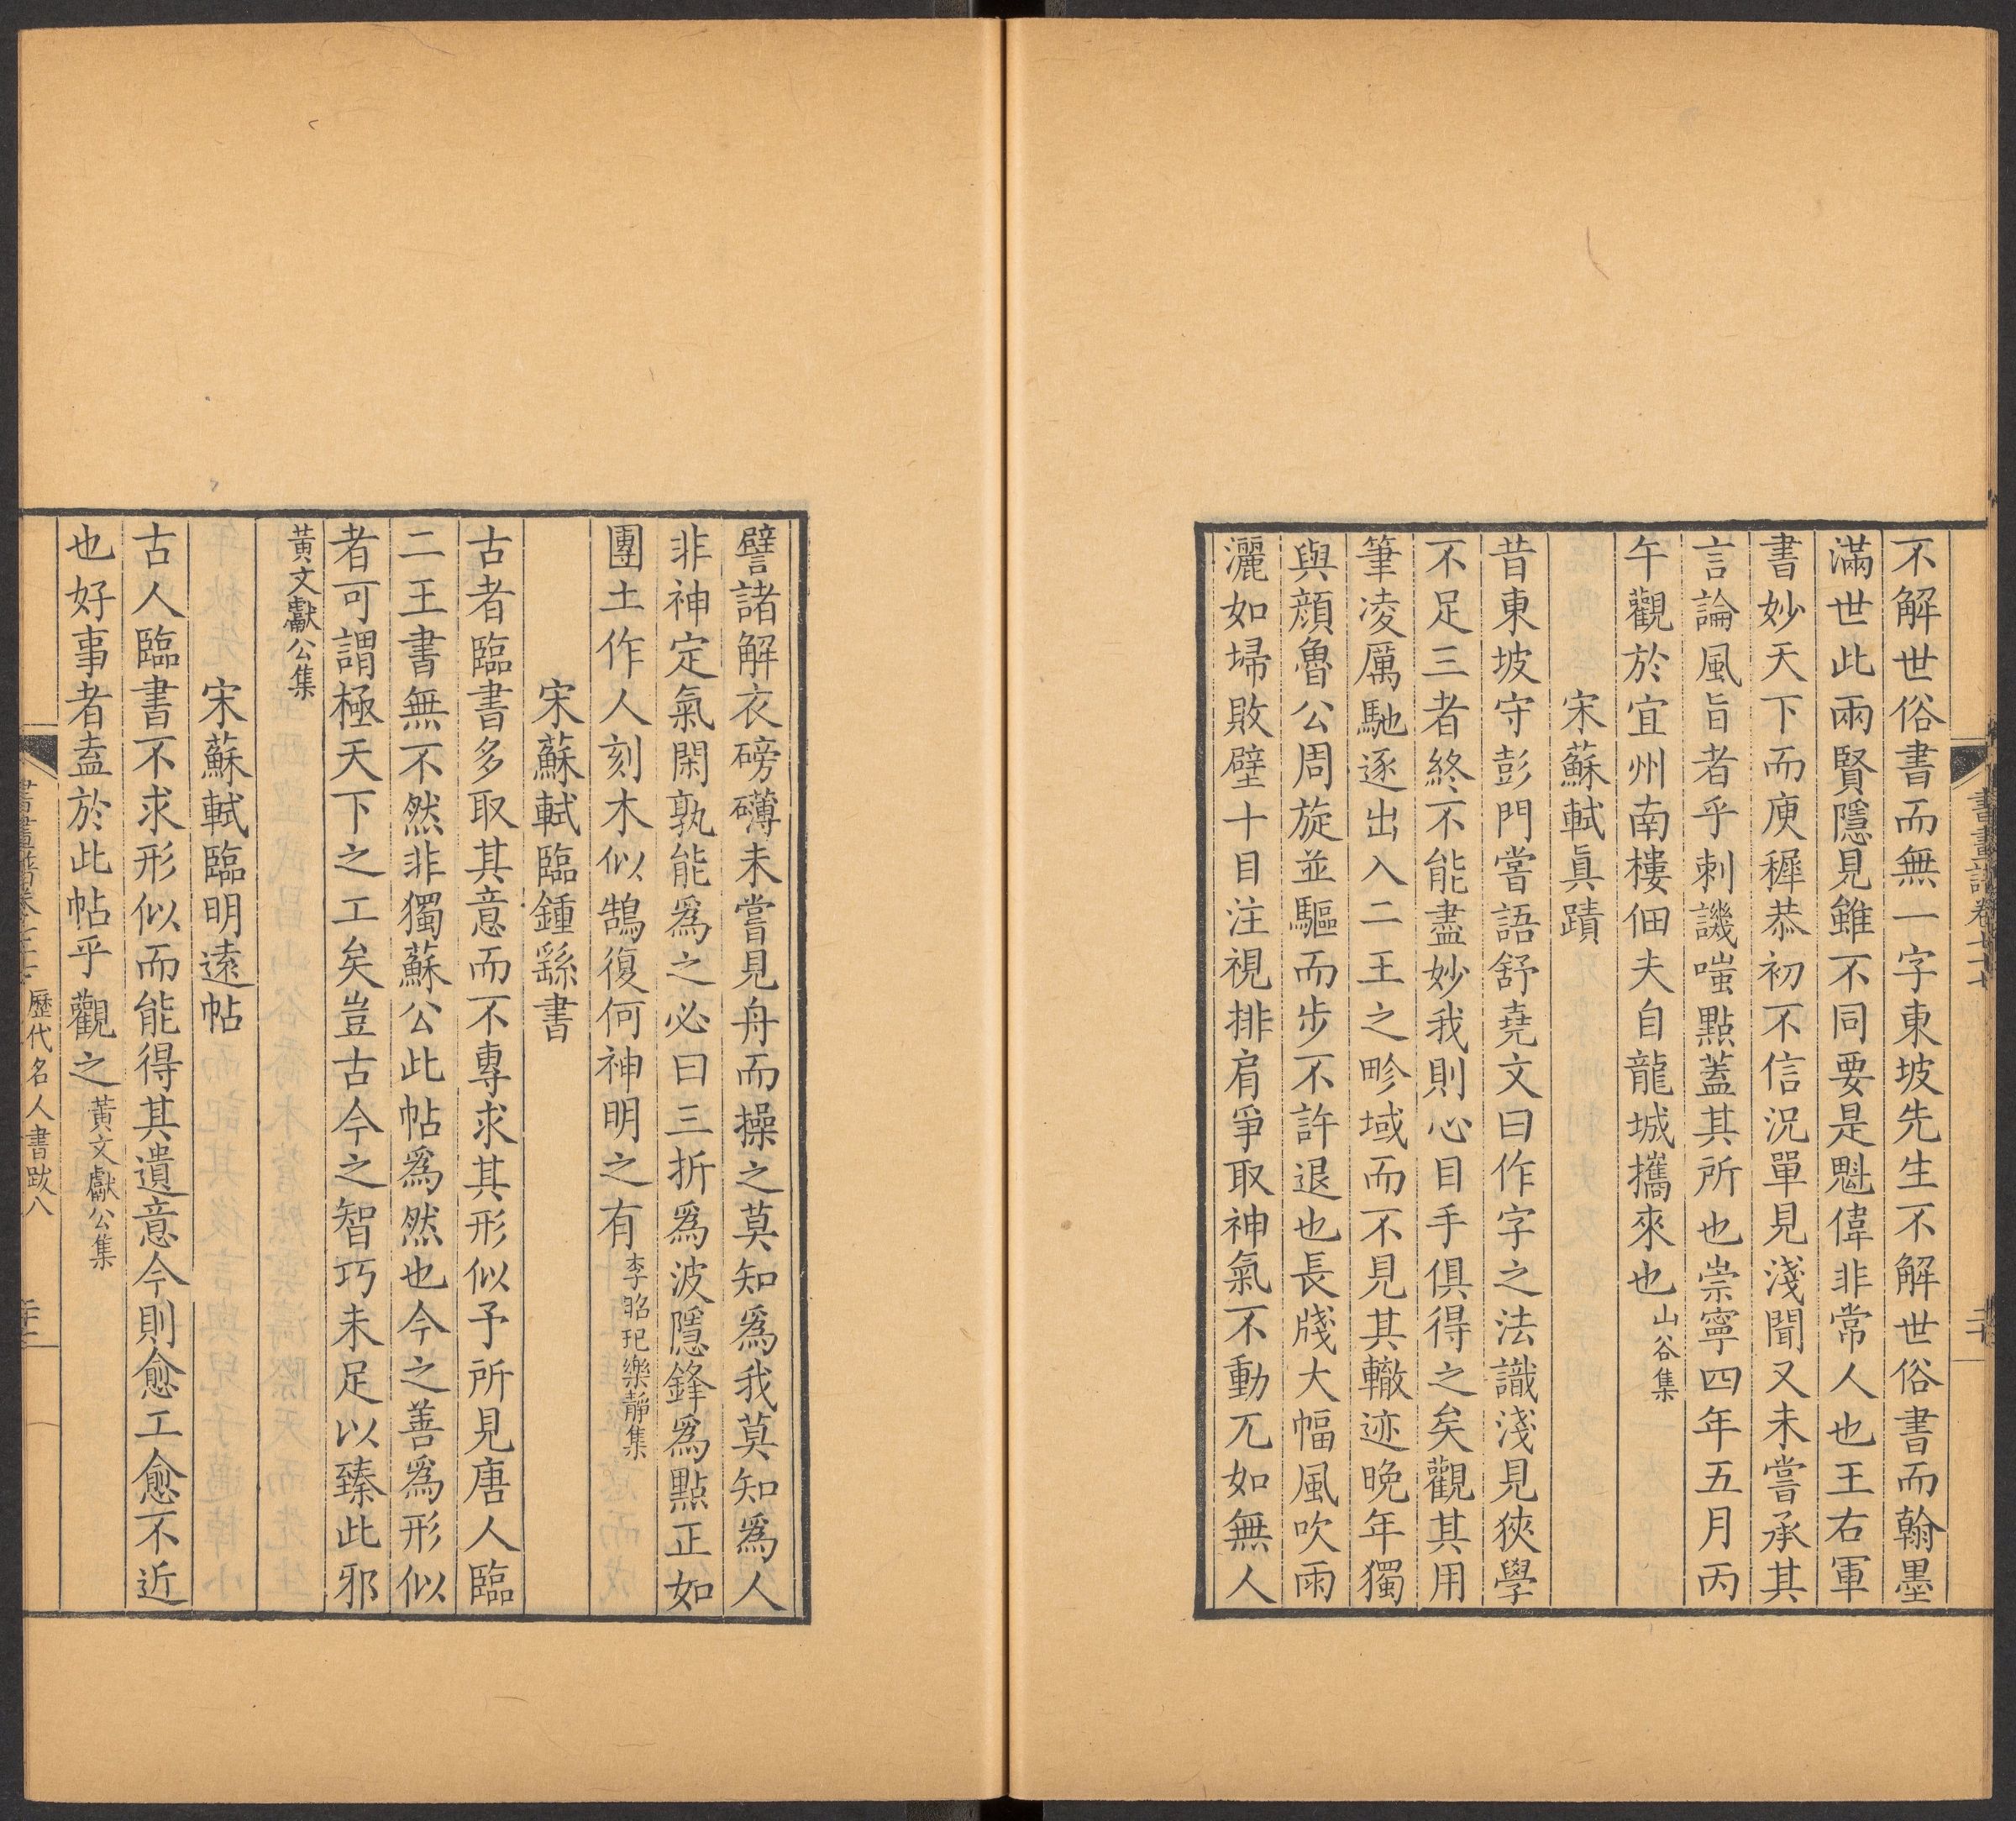 不解世俗書而無一字東坡先生不解世俗書而翰墨
滿世此兩賢隱見雖不同要是魁偉非常人也王右軍
書妙天下而庾穉恭初不信況單見淺聞又未嘗承其
言論風旨者乎刺譏嗤點蓋其所也崇寧四年五月丙
午觀於宜州南樓佃夫自龍城攜來也山谷集
宋蘇軾眞蹟
昔東坡守彭門嘗語舒堯文曰作字之法識淺見狹學
不足三者終不能盡妙我則心目手俱得之矣觀其用
筆凌厲馳逐出入二王之畛域而不見其轍迹晚年獨
與顏魯公周旋並驅而步不許退也長牋大幅風吹雨
灑如埽敗壁十目注視排肩爭取神氣不動兀如無人
譬諸解衣磅礴未嘗見舟而操之莫知爲我莫知爲人
非神定氣閑孰能爲之必曰三折爲波隱鋒爲點正如
團土作人刻木似鵠復何神明之有李昭玘樂靜集
宋蘇軾臨鍾繇書
古者臨書多取其意而不專求其形似予所見唐人臨
二王書無不然非獨蘇公此帖爲然也今之善爲形似
者可謂極天下之工矣豈古今之智巧未足以臻此邪
黃文獻公集
宋蘇軾臨明遠帖
古人臨書不求形似而能得其遺意今則愈工愈不近
也好事者盍於此帖乎觀之黃文獻公集
歷代名人書跋八